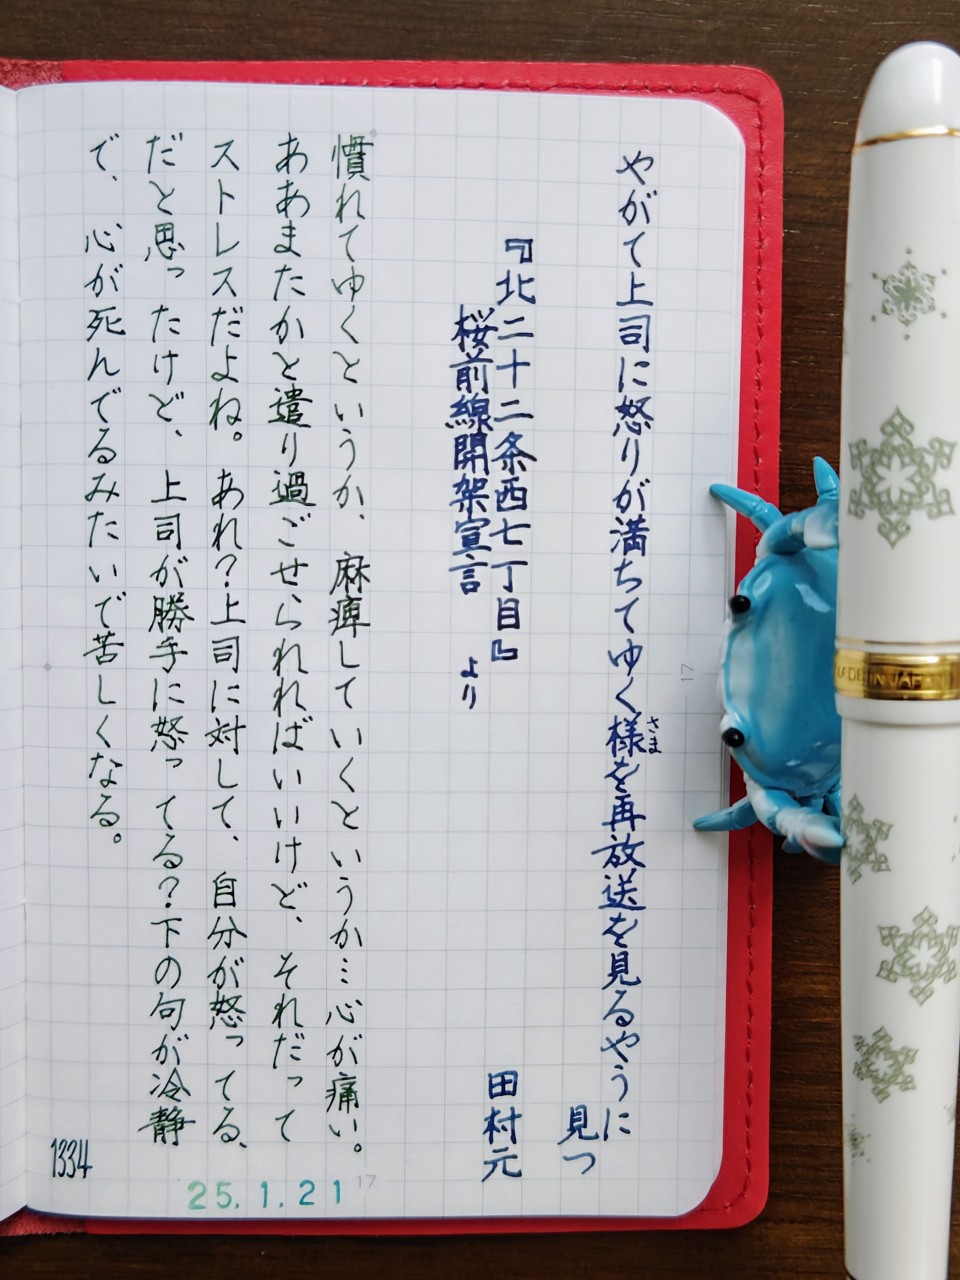 やがて上司に怒りが満ちてゆく様を再放送を見るやうに
さま
見つ
『北二十二条西七丁目』
桜前線開架宣言 より
田村元
慣れてゆくというか、麻痺していくというか…心が痛い。
ああまたかと遣り過ごせられればいいけど、それだって
ストレスだよね。あれ?上司に対して、自分が怒ってる、
だと思ったけど、上司が勝手に怒ってる?下の句が冷静
で、心が死んでるみたいで苦しくなる。
1334
25.1.21
17
17
MADE IN JAPAN